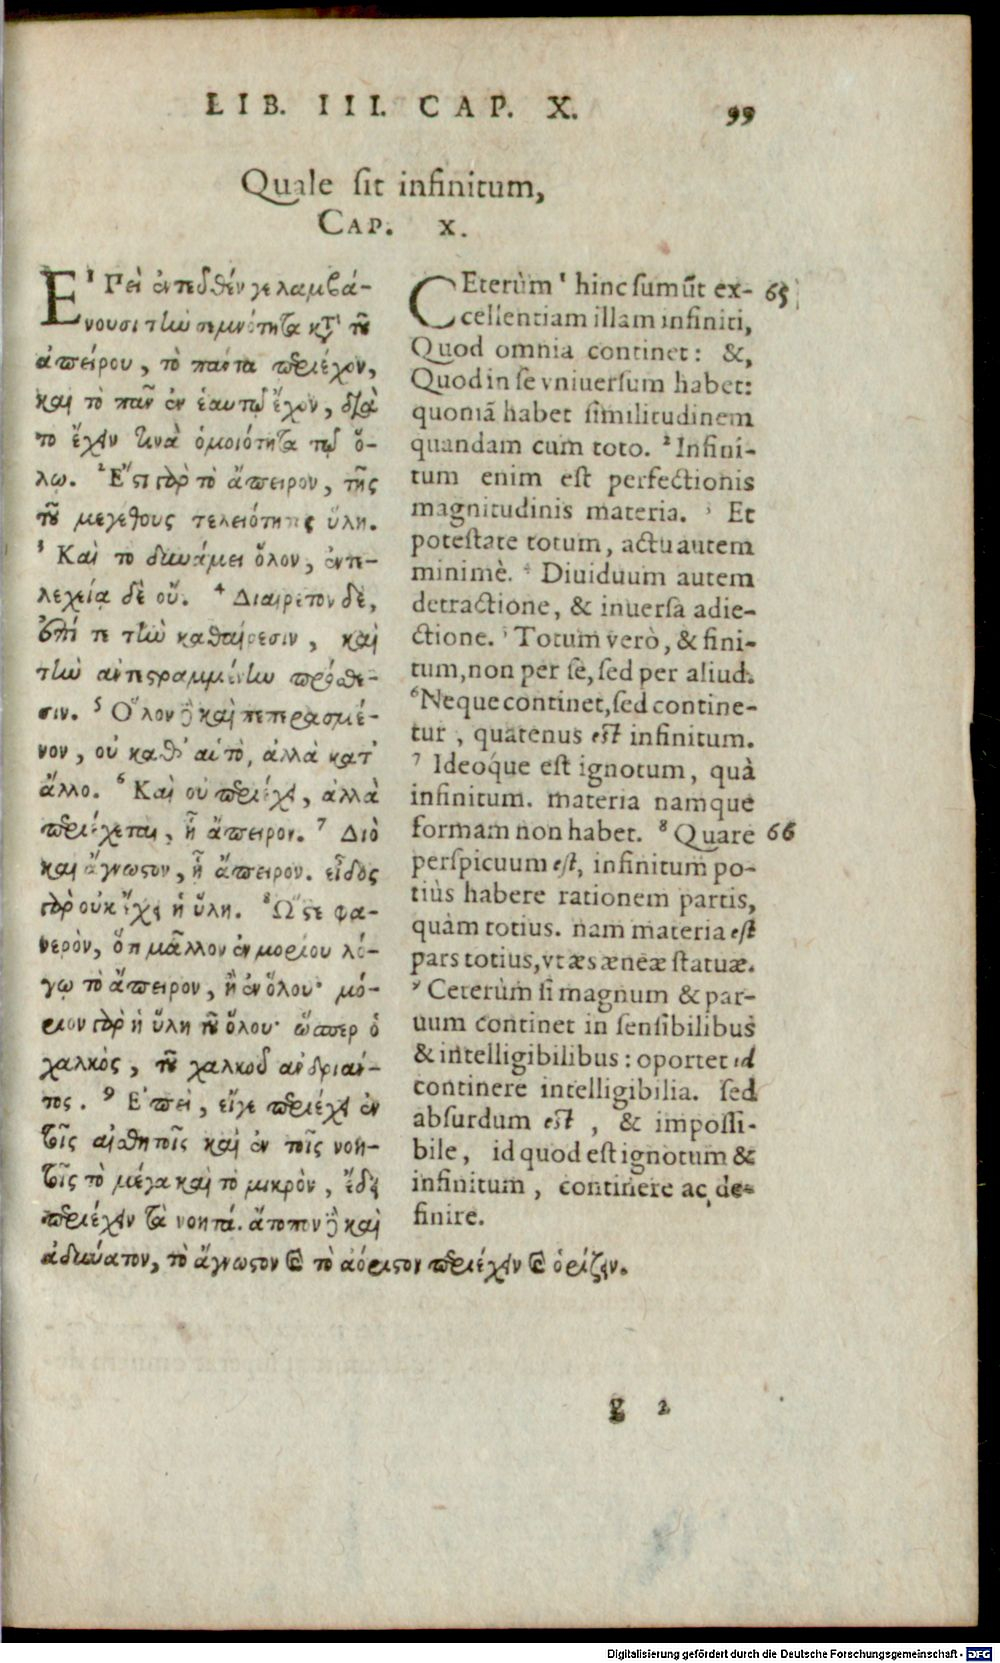 LIB. III. CAP. X. 99
Quale sit infinitum,
CAP. X.
Ε¹Πεὶ ἐντεῦθέν γε λαμβά-
νουσι τὴν σεμνότητα κατὰ τοῦ
ἀπείρου, τὸ πάντα περιέχον,
καὶ τὸ πᾶν ἐν ἑαυτῷ ἔχον, διὰ
τὸ ἔχειν τινὰ ὁμοιότητα τῷ ὅ-
λῳ. ² Ἔστι γὰρ τὸ ἄπειρον, τῆς
τοῦ μεγέθους τελειότητος ὕλη.
³ Καὶ τὸ δυνάμει ὅλον, ἐντε-
λεχείᾳ δὲ οὔ. ⁴ Διαιρετὸν δὲ,
ἐπί τε τὴν καθαίρεσιν, καὶ
τὴν ἀντεστραμμένην πρόσθε-
σιν. ⁵ Ὅλον δὲ καὶ πεπερασμέ-
νον, οὐ καθ' αὑτὸ, ἀλλὰ κατ'
ἄλλο. ⁶ Καὶ οὐ περιέχει, ἀλλὰ
περιέχεται, ᾗ ἄπειρον. ⁷ Διὸ
καὶ ἄγνωστον, ᾗ ἄπειρον. εἶδος
γὰρ οὐκ ἔχει ἡ ὕλη. ⁸ Ὥστε φα-
νερὸν, ὅτι μᾶλλον ἐν μορίου λό-
γῳ τὸ ἄπειρον, ἢ ἐν ὅλου· μό-
ριον γὰρ ἡ ὕλη τοῦ ὅλου· ὥσπερ ὁ
χαλκὸς, τοῦ χαλκοῦ ἀνδριάν-
τος. ⁹ Ἐπεὶ, εἴγε περιέχει ἐν
τοῖς αἰσθητοῖς καὶ ἐν τοῖς νοη-
τοῖς τὸ μέγα καὶ τὸ μικρὸν, ἔδει
περιέχειν τὰ νοητά. ἄτοπον δὲ καὶ
ἀδύνατον, τὸ ἄγνωστον καὶ τὸ ἀόριστον περιέχειν καὶ ὁρίζειν.
CEterùm ¹ hinc sumũt ex- 65
cellentiam illam infiniti,
Quod omnia continet: &,
Quod in se vniuersum habet:
quoniã habet similitudinem
quandam cum toto. ² Infini-
tum enim est perfectionis
magnitudinis materia. ³ Et
potestate totum, actu autem
minimè. ⁴ Diuiduum autem
detractione, & inuersa adie-
ctione. ⁵ Totum verò, & fini-
tum, non per se, sed per aliud.
⁶ Neque continet, sed contine-
tur, quatenus est infinitum.
⁷ Ideóque est ignotum, quà
infinitum. materia namque
formam non habet. ⁸ Quare 66
perspicuum est, infinitum po-
tiùs habere rationem partis,
quàm totius. nam materia est
pars totius, vt æs æneæ statuæ.
⁹ Ceterùm si magnum & par-
uum continet in sensibilibus
& intelligibilibus: oportet id
continere intelligibilia. sed
absurdum est, & impossi-
bile, id quod est ignotum &
infinitum, continere ac de-
finire.
g 2
Digitalisierung gefördert durch die Deutsche Forschungsgemeinschaft - DFG